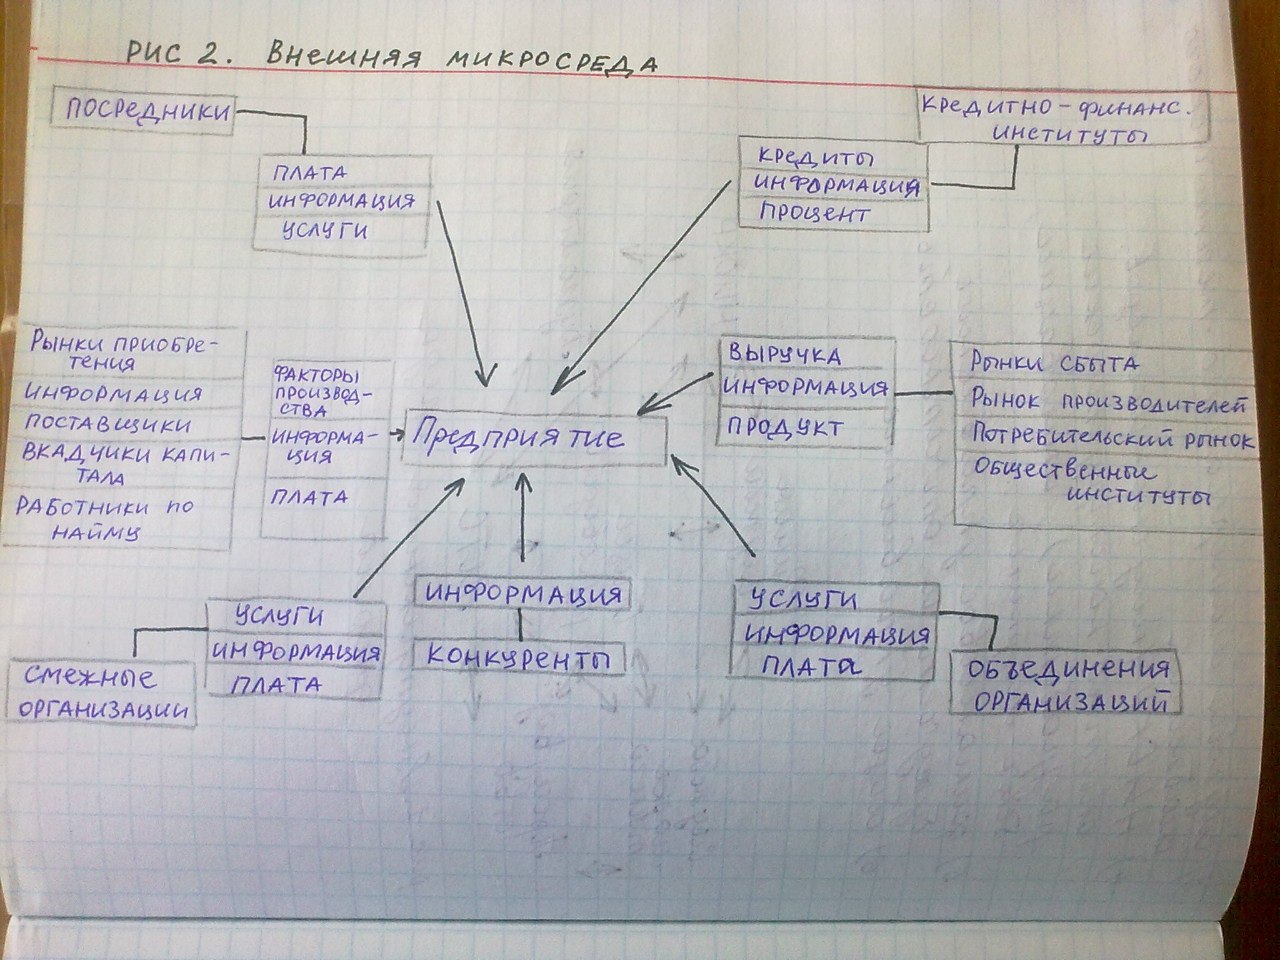 РИС 2. ВНЕШНЯЯ МИКРОСРЕДА
ПОСРЕДНИКИ
ПЛАТА
ИНФОРМАЦИЯ
УСЛУГИ
КРЕДИТНО-ФИНАНС.
ИНСТИТУТЫ
КРЕДИТЫ
ИНФОРМАЦИЯ
ПРОЦЕНТ
РЫНКИ ПРИОБРЕ-
ТЕНИЯ
ИНФОРМАЦИЯ
ПОСТАВЩИКИ
ВКАДЧИКИ КАПИ-
ТАЛА
РАБОТНИКИ ПО
НАЙМУ
ФАКТОРЫ
ПРОИЗВОД-
СТВА
ИНФОРМА-
ЦИЯ
ПЛАТА
ПРЕДПРИЯТИЕ
ВЫРУЧКА
ИНФОРМАЦИЯ
ПРОДУКТ
РЫНКИ СБЫТА
РЫНОК ПРОИЗВОДИТЕЛЕЙ
ПОТРЕБИТЕЛЬСКИЙ РЫНОК
ОБЩЕСТВЕННЫЕ
ИНСТИТУТЫ
УСЛУГИ
ИНФОРМАЦИЯ
ПЛАТА
СМЕЖНЫЕ
ОРГАНИЗАЦИИ
ИНФОРМАЦИЯ
КОНКУРЕНТЫ
УСЛУГИ
ИНФОРМАЦИЯ
ПЛАТА
ОБЪЕДИНЕНИЯ
ОРГАНИЗАЦИЙ